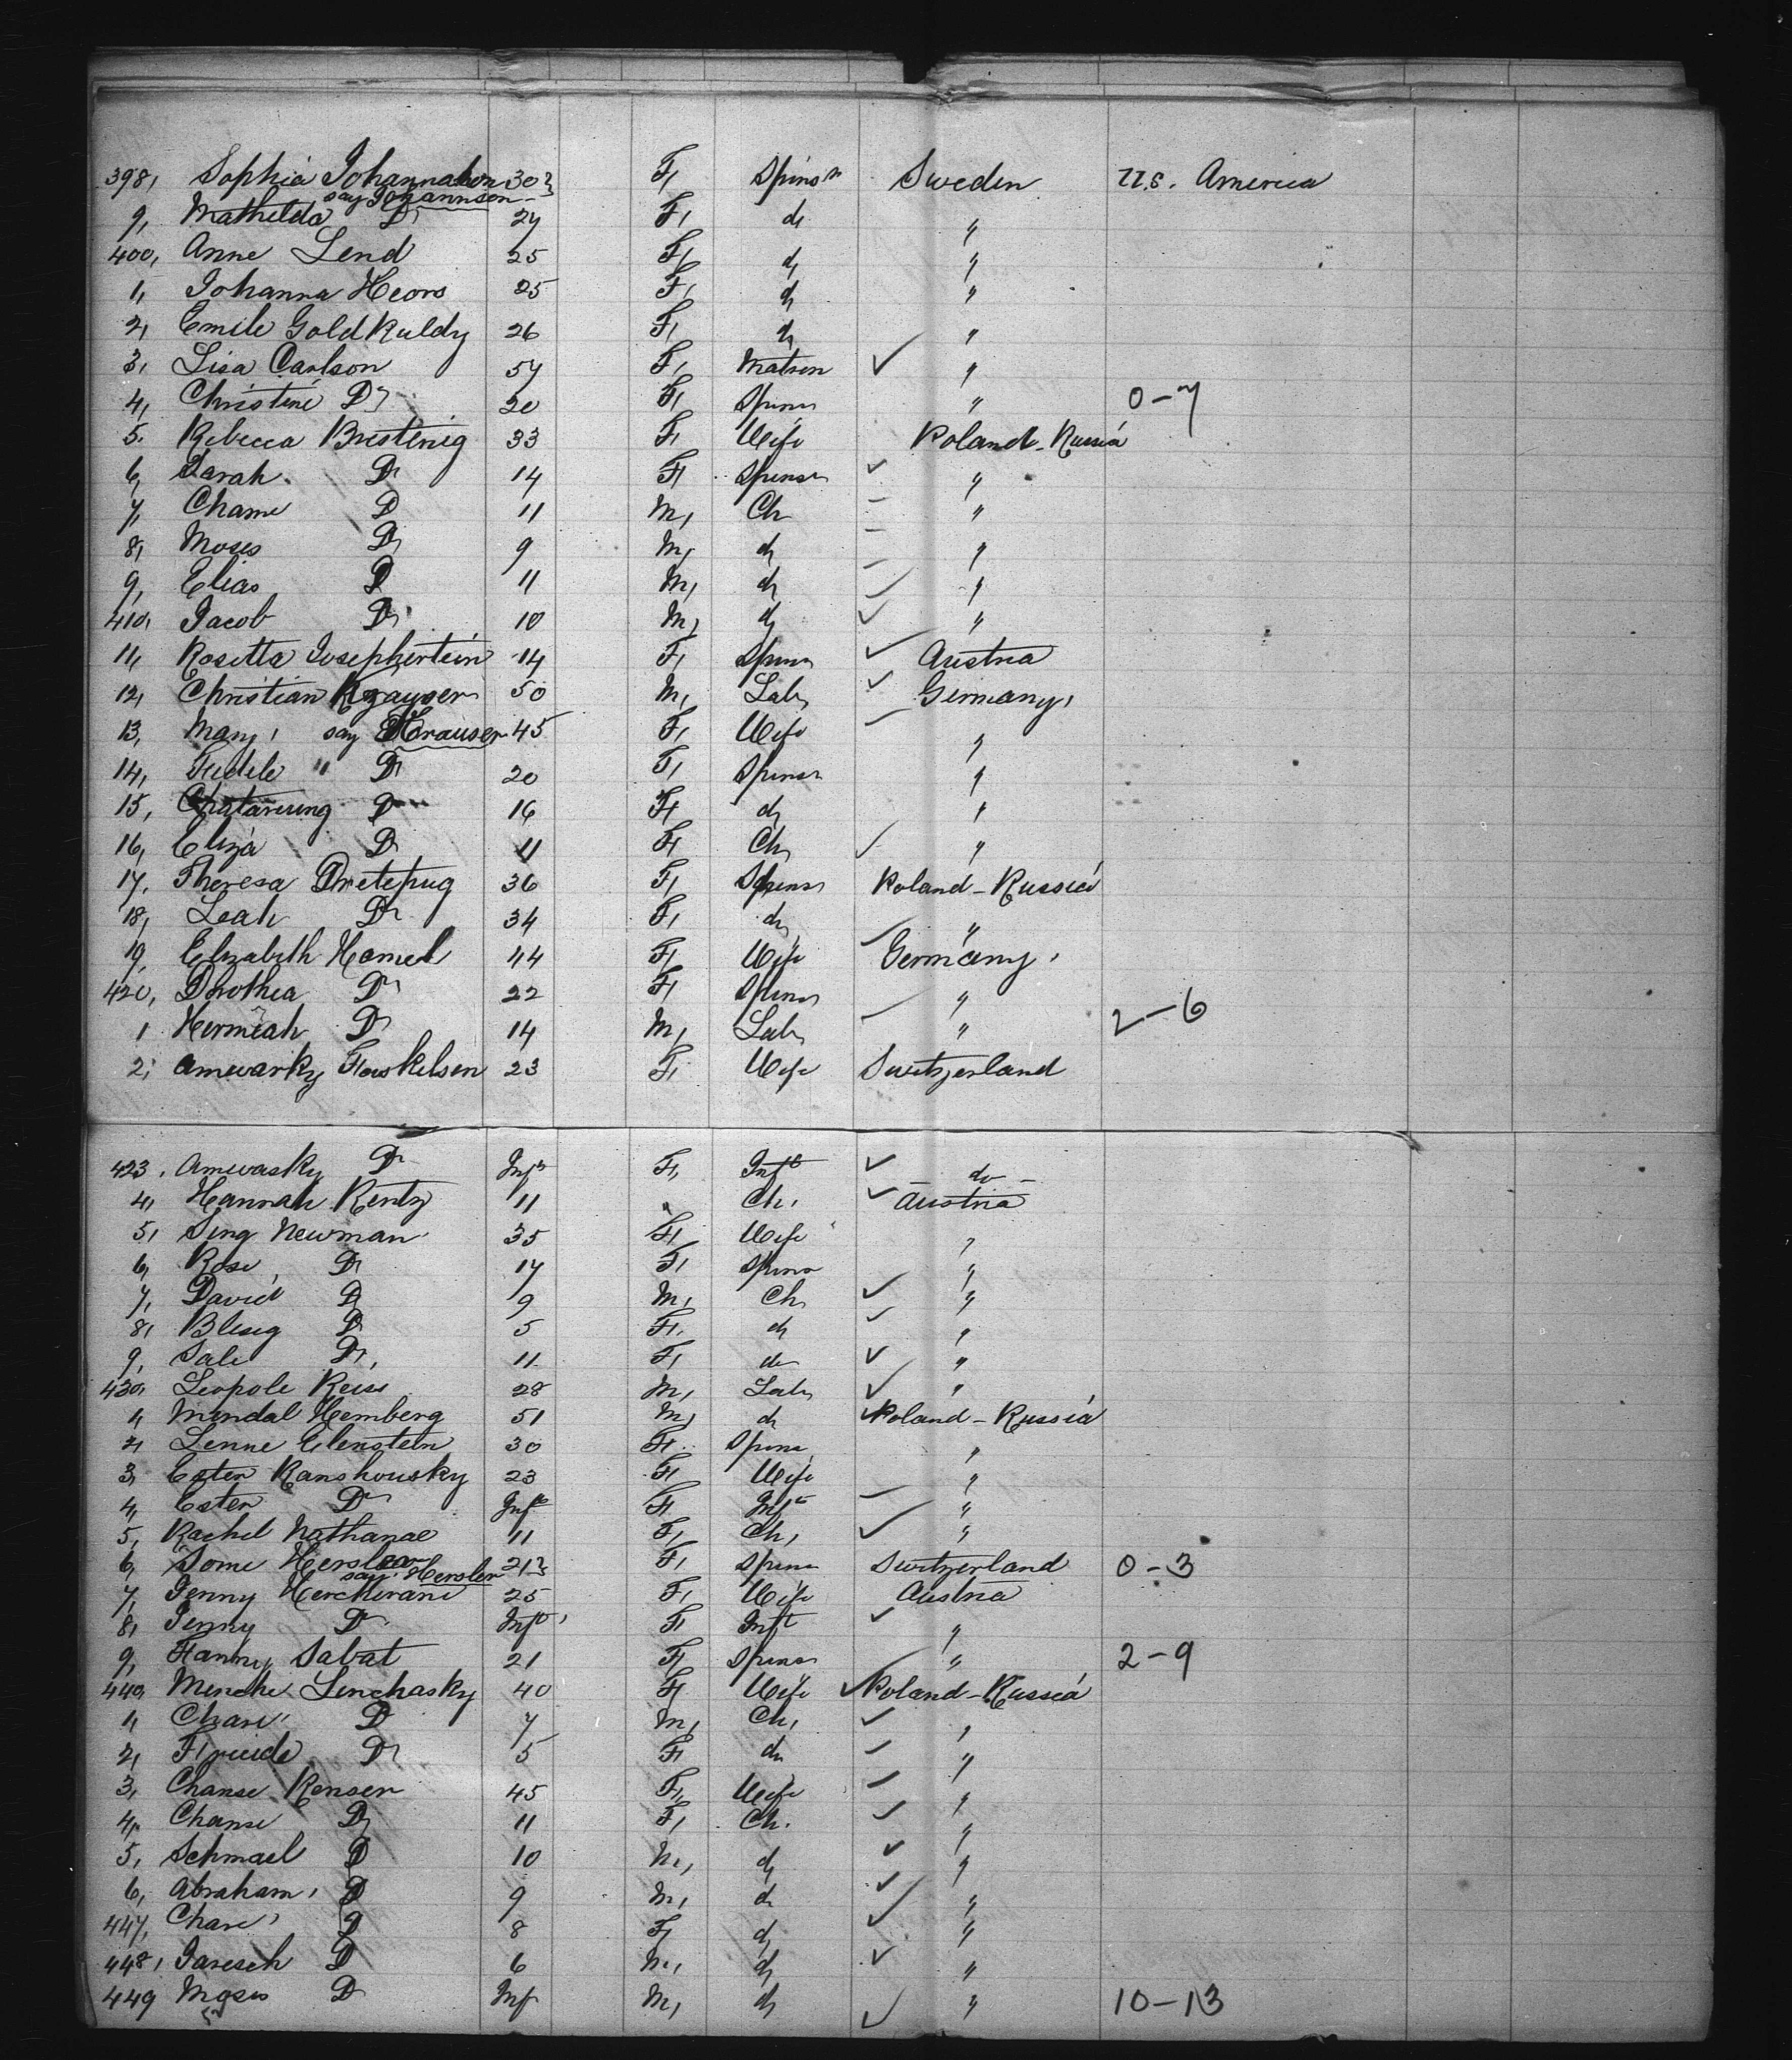 398, Sophia Johannason 30 F, Spinsr Sweden U.S. America
say Johannsen
9, Mathilda D 27 F, do "
400, Anne Lend 25 F, do "
1, Johanna Heors 25 F, do "
2, Emile Goldkuldy 26 F, do "
3, Lisa Carlson 57 F, Matron ✓ "
4, Christine Do 20 F, Spins " 0-7
5. Rebecca Brestenig 33 F, Wife Poland-Russia
6, Sarah Do 14 F, Spinsr ✓ "
7, Chame D 11 M, Ch "
8, Moses Do 9 M, do "
9, Elias D 11 M, do "
410, Jacob Do 10 M, do ✓ "
11, Rosetta Josephertein 14 F, Spins ✓ Austria
12, Christian Krayser 50 M, Lab, ✓ Germany,
13, Mary, say Krauser 45 F, Wife "
14, Fidele " Do 20 F, Spinsr "
15, Chatarining D 16 F, do "
16, Eliza Do 11 F, Ch, ✓ "
17, Theresa Pretepug 36 F, Spins Poland-Russia
18, Leah Do 34 F, do "
19, Elizabeth Hamel 44 F, Wife Germany,
420, Dorothea Do 22 F, Spins "
1 Hermiah Do 14 M, Lab, " 2-6
2, Amevarky Floeskelsen 23 F, Wife Switzerland
423, Amevasky Do Inft F, Inft ✓ - do -
4, Hannah Rentz 11 " Ch, ✓ Austria
5, Sing Newman 35 F, Wife "
6, Rose, Do 17 F, Spins "
7, David Do 9 M, Ch, ✓ "
8, Blesig Do 5 F, do ✓ "
9, Sale Do, 11 F, do ✓ "
430, Leopole Reiss 28 M, Lab, ✓ "
1, Mendal Hemberg 51 M, do ✓ Poland-Russia
2, Lenne Elenstein 30 F, Spins "
3, Ester Kanshousky 23 F, Wife "
4, Ester Do Inft F, Inft "
5, Rachel Nathanae 11 F, Ch, ✓ "
6, Some Hersler 21 F, Spins Switzerland 0-3
say Hersler
7, Jenny Herchirani 25 F, Wife Austria
8, Jenny D Inft F, Inft ✓ "
9, Fanny Sabat 21 F, Spins " 2-9
440, Menche Linchasky 40 F, Wife ✓ Poland-Russia
1, Chare D 7 M, Ch, ✓ "
2, Fruide Do 5 F, do ✓ "
3, Chanse Renser 45 F, Wife ✓ "
4, Chanse Do 11 F, Ch. ✓ "
5, Schmael D 10 M, do ✓ "
6, Abraham, D 9 M, do ✓ "
447, Chare D 8 F, do ✓ "
448, Jaresch D 6 M, do ✓ "
449 Moses D Inf M, do ✓ " 10-13